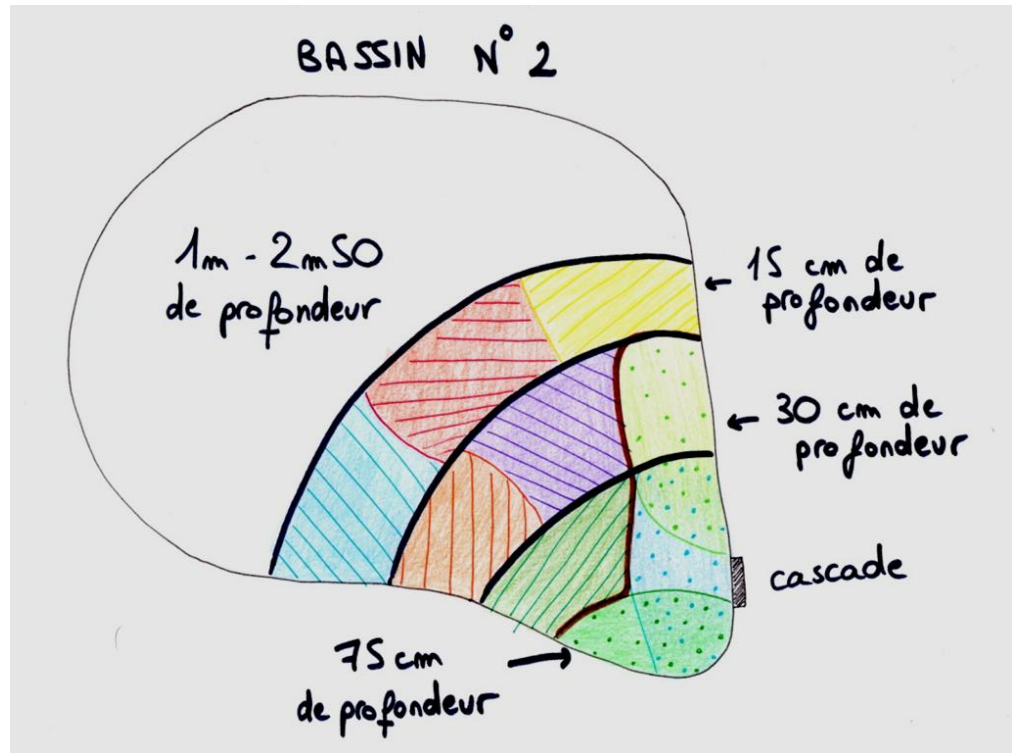 BASSIN N° 2
1m - 2m50
de profondeur
15 cm de
profondeur
30 cm de
profondeur
cascade
75 cm
de profondeur